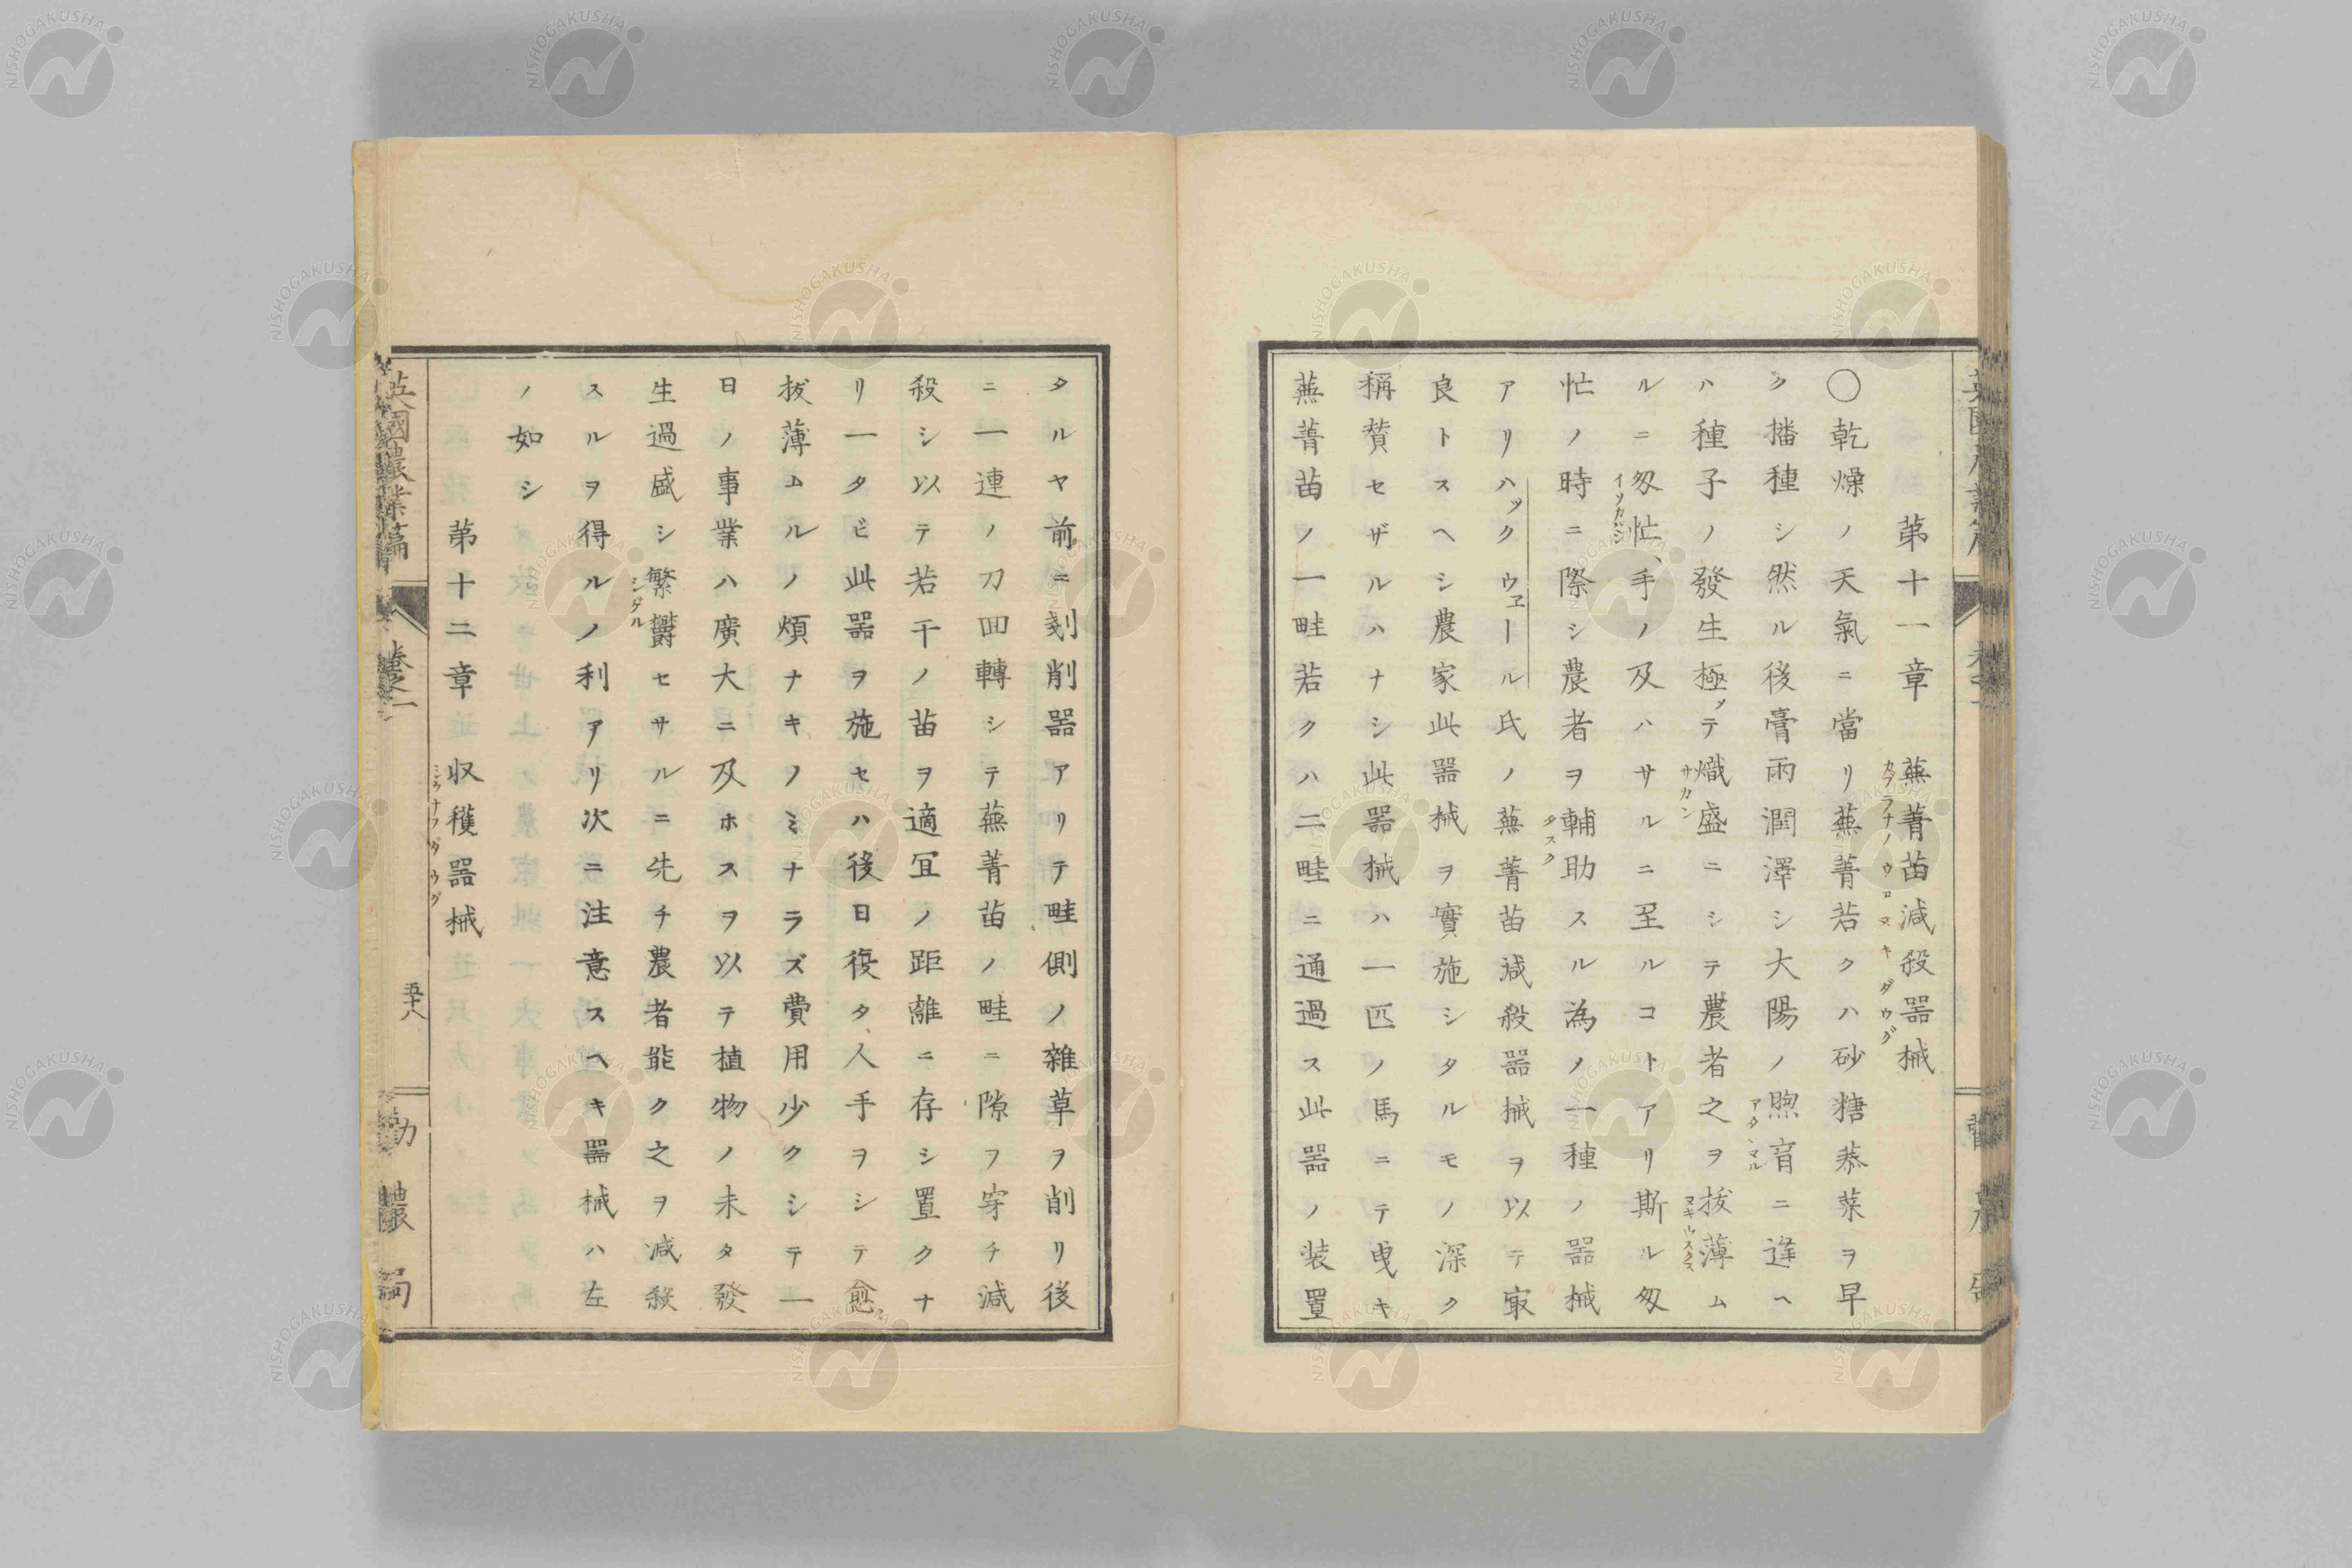 第十一章　蕪菁苗減殺器械
〇乾燥ノ天氣ニ當リ蕪菁若クハ砂糖菾菜ヲ早
ク播種シ然ル後膏雨潤澤シ大陽ノ煦育ニ逢ヘ
ハ種子ノ發生極メテ熾盛ニシテ農者之ヲ拔薄ム
ルニ匆忙、手ノ及ハサルニ至ルコトアリ斯ル匆
忙ノ時ニ際シ農者ヲ輔助スル為ノ一種ノ器械
アリハックウヱール氏ノ蕪菁苗減殺器械ヲ以テ㝡
良トスヘシ農家此器械ヲ實施シタルモノ深ク
稱賛セザルハナシ此器械ハ一匹ノ馬ニテ曳キ
蕪菁苗ノ一畦若クハ二畦ニ通過ス此器ノ装置
タルヤ前ニ剗削器アリテ畦側ノ雜草ヲ削リ後
ニ一連ノ刀回轉シテ蕪菁苗ノ畦ニ隙ヲ穿チ減
殺シ以テ若干ノ苗ヲ適宜ノ距離ニ存シ置クナ
リ一タビ此器ヲ施セハ後日復タ人手ヲシテ愈
拔薄ムルノ煩ナキノミナラズ費用少クシテ一
日ノ事業ハ廣大ニ及ホスヲ以テ植物ノ未タ發
生過盛シ繁欝セサルニ先チ農者能ク之ヲ減殺
スルヲ得ルノ利アリ次ニ注意スヘキ器械ハ左
ノ如シ
第十二章　収穫器械
英國農業篇　卷之一　五十八　勸農局
NISHOGAKUSHA